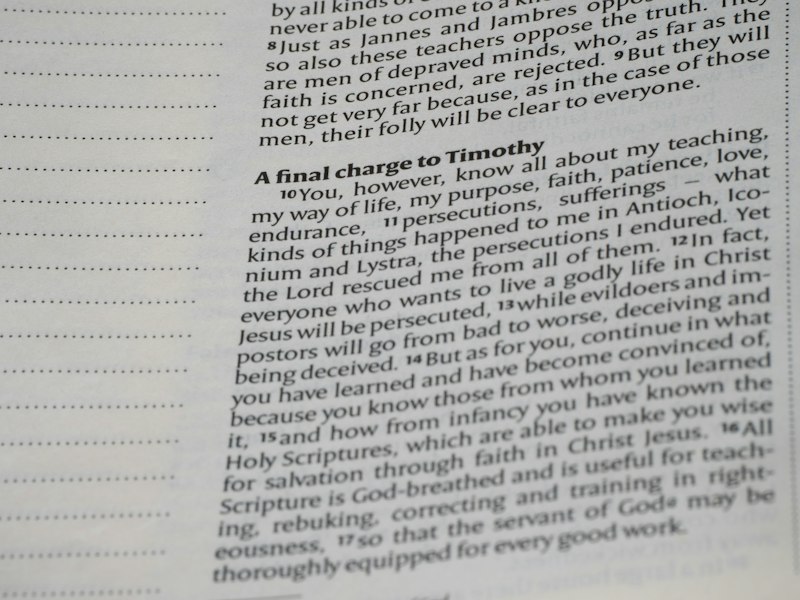 by all kinds of
never able to come to a
8Just as Jannes and Jambres oppo
so also these teachers oppose the truth. They
are men of depraved minds, who, as far as the
faith is concerned, are rejected. 9But they will
not get very far because, as in the case of those
men, their folly will be clear to everyone.
A final charge to Timothy
10You, however, know all about my teaching,
my way of life, my purpose, faith, patience, love,
endurance, 11persecutions, sufferings – what
kinds of things happened to me in Antioch, Ico-
nium and Lystra, the persecutions I endured. Yet
the Lord rescued me from all of them. 12In fact,
everyone who wants to live a godly life in Christ
Jesus will be persecuted, 13while evildoers and im-
postors will go from bad to worse, deceiving and
being deceived. 14But as for you, continue in what
you have learned and have become convinced of,
because you know those from whom you learned
it, 15and how from infancy you have known the
Holy Scriptures, which are able to make you wise
for salvation through faith in Christ Jesus. 16All
Scripture is God-breathed and is useful for teach-
ing, rebuking, correcting and training in right-
eousness, 17so that the servant of Goda may be
thoroughly equipped for every good work.